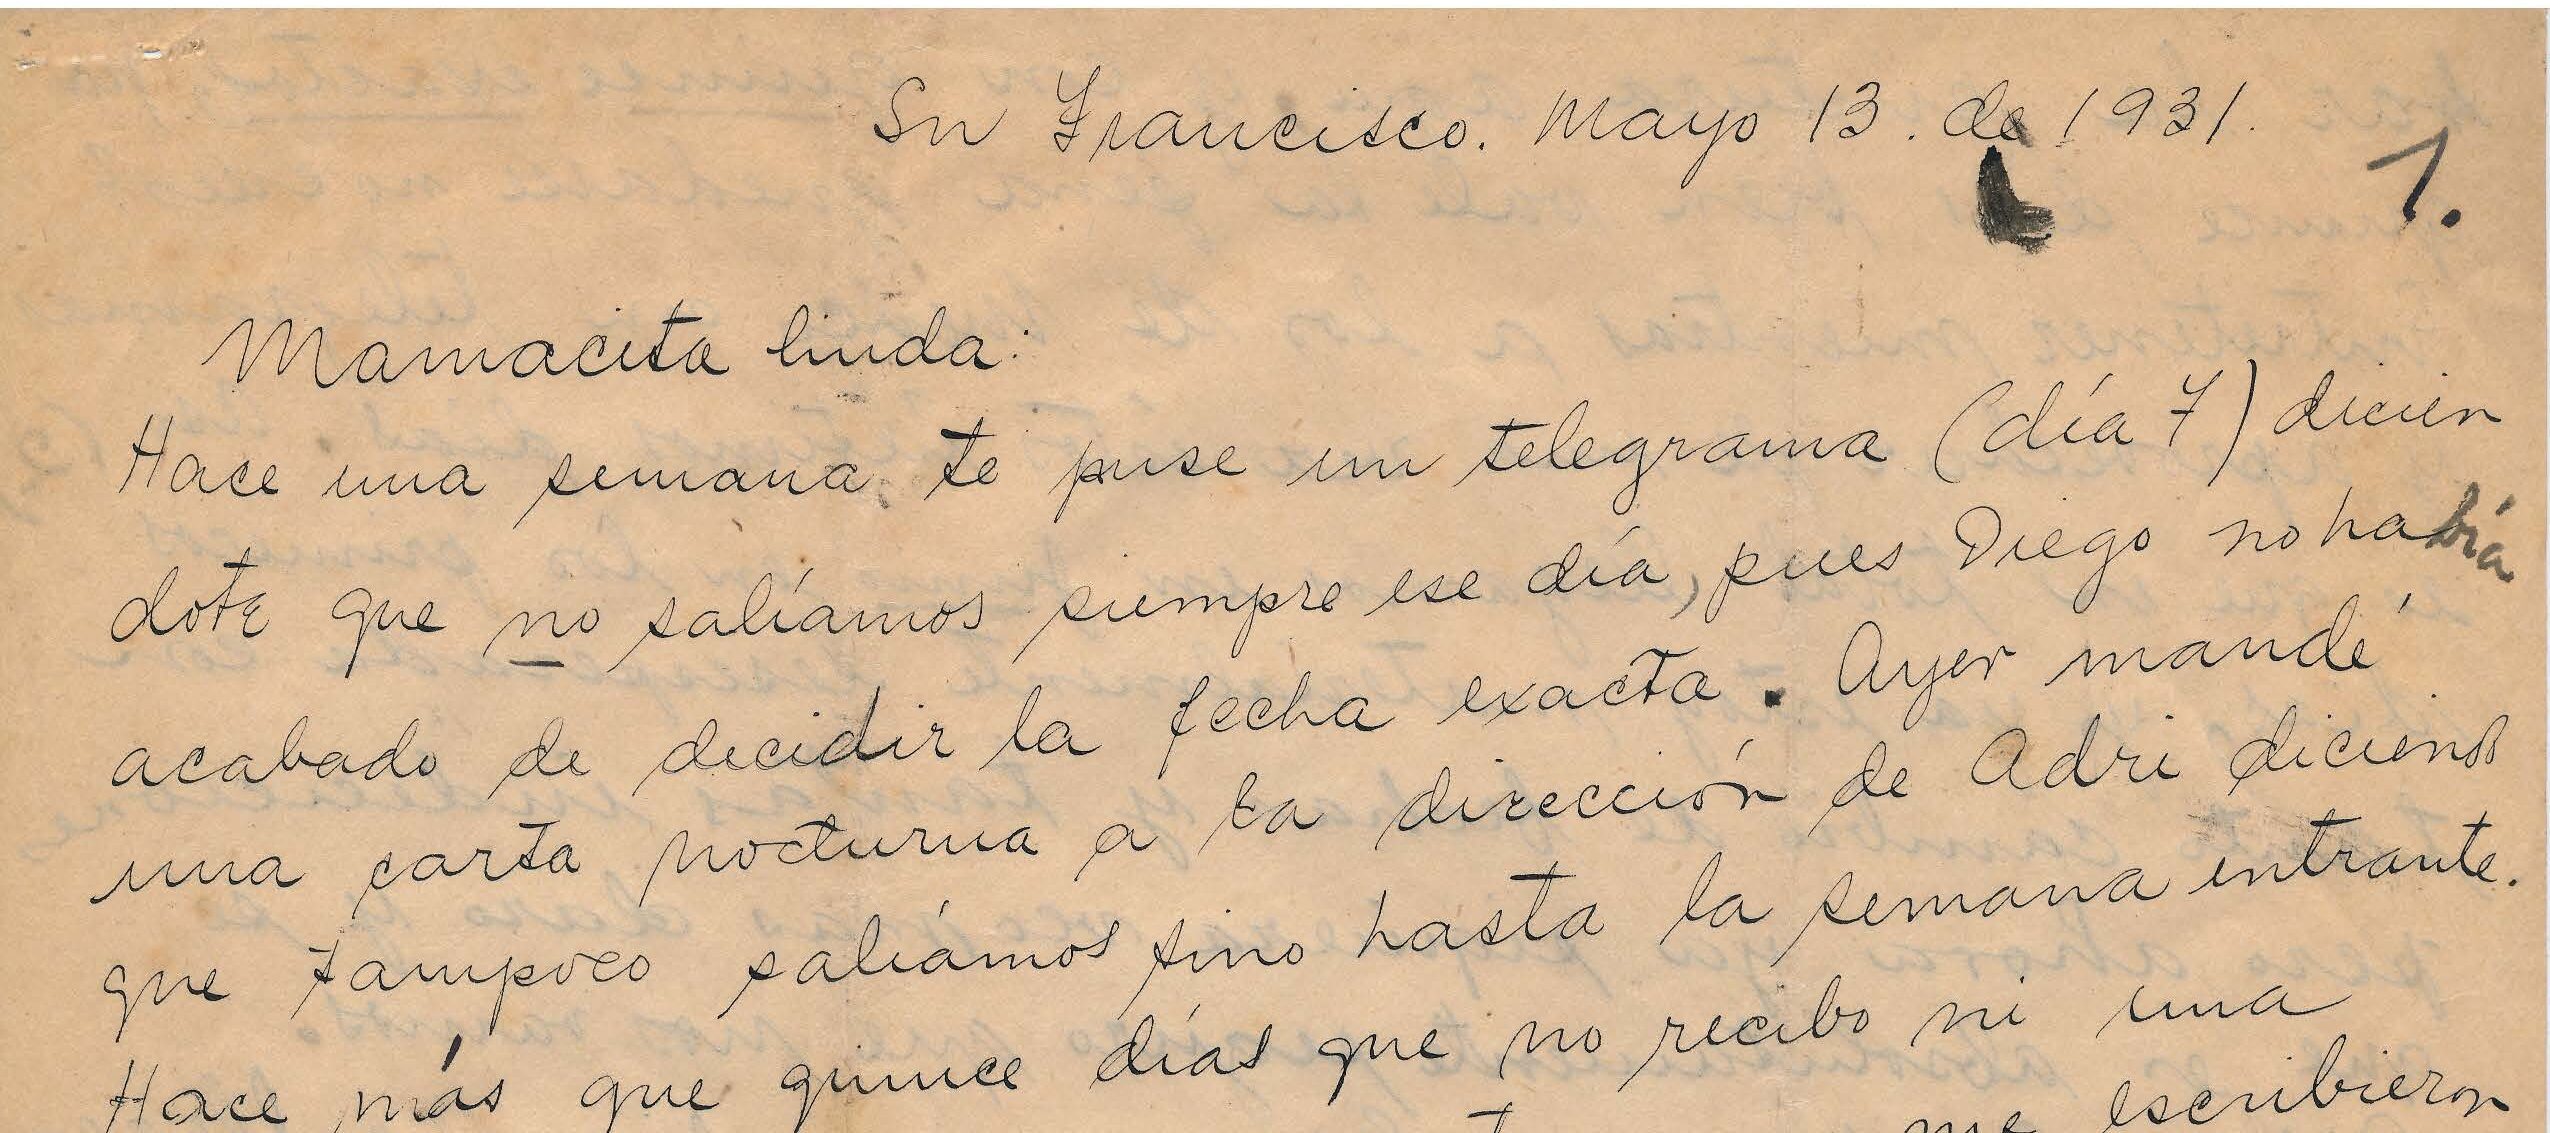 Sn Francisco. Mayo 13. de 1931.
1.
Mamacita linda:
Hace una semana te puse un telegrama (día 7) dicien
dote que no salíamos siempre ese día, pues Diego no había
acabado de decidir la fecha exacta. Ayer mandé
una carta nocturna a la dirección de Adri diciendo
que tampoco saliámos sino hasta la semana entrante.
Hace más que quince días que no recibo ni una
me escribieron